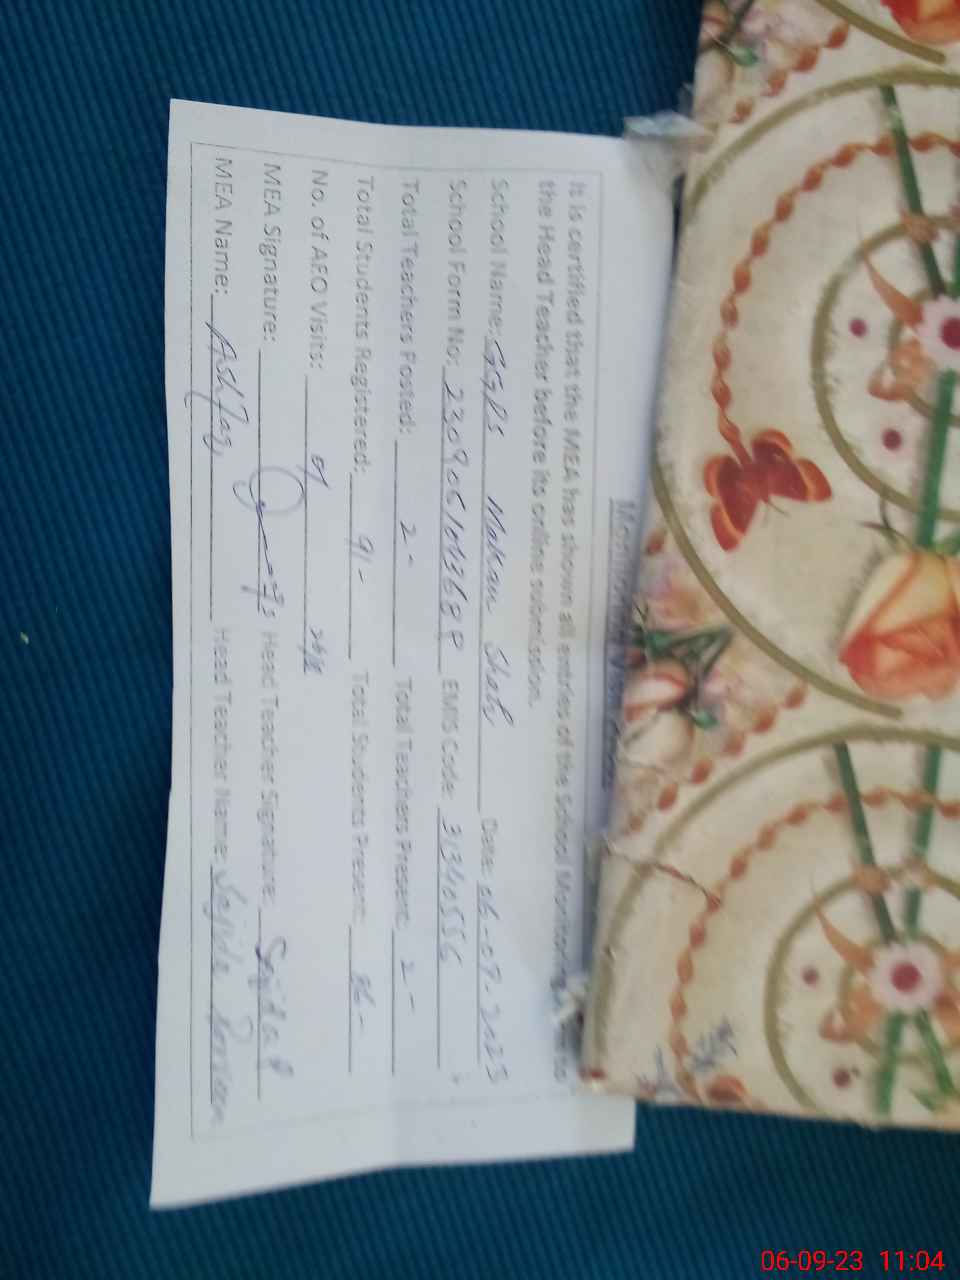 It is certified that the MEA has shown all entries of the School Monitoring
the Head Teacher before its online submission.
School Name: GGPS Makan Shah Date: 06-09-2023
School Form No: EMIS Code: 31340556
Total Teachers Posted: 2- Total Teachers Present: 2-
Total Students Registered: 91- Total Students Present: 86-
No. of AEO Visits:
MEA Signature: Head Teacher Signature: Sajida P
MEA Name: Ashfaq Head Teacher Name: Sajida Parveen
06-09-23 11:04